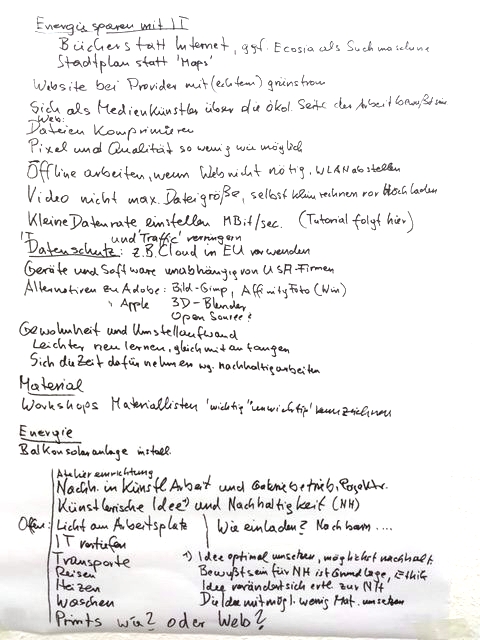 Energie sparen mit IT
Bücher statt Internet, ggf. Ecosia als Suchmaschine
Stadtplan statt 'Maps'
Website bei Provider mit (echtem) grünstrom
Sich als Medienkünstler über die ökol. Seite der Arbeit bewußt sein
Web:
Dateien Komprimieren
Pixel und Qualität so wenig wie möglich
Offline arbeiten, wenn Web nicht nötig, WLAN abstellen
Video nicht max. Dateigröße, selbst klein rechnen vor hochladen
Kleine Datenrate einstellen MBit/sec. (Tutorial folgt hier)
IT und 'Traffic' verringern
Datenschutz: z.B. Cloud in EU verwenden
Geräte und Software unabhängig von USA-Firmen
Alternativen zu Adobe: Bild-Gimp, Affinity Foto (Win)
" Apple 3D-Blender
Open Source?
Gewohnheit und Umstellaufwand
Leichter neu lernen, gleich mit anfangen
Sich die Zeit dafür nehmen wg. nachhaltig arbeiten
Material
Workshops Materiallisten 'wichtig' 'unwichtig' kennzeichnen
Energie
Balkonsolaranlage install.
Ateliereinrichtung
Nachh. in Künstl. Arbeit und Projektr.
Künstlerische Idee 1) und Nachhaltigkeit (NH)
Offen: Licht am Arbeitsplatz Wie einladen? Nachbarn ....
IT vertiefen
Transporte 1) Idee optimal umsetzen, möglichst nachhalt.
Reisen Bewußtsein für NH ist Grundlage, Ethik
Heizen Idee verändert sich evtl. zur NH
Waschen Die Idee mit mögl. wenig Mat. umsetzen
Prints wie? oder Web?